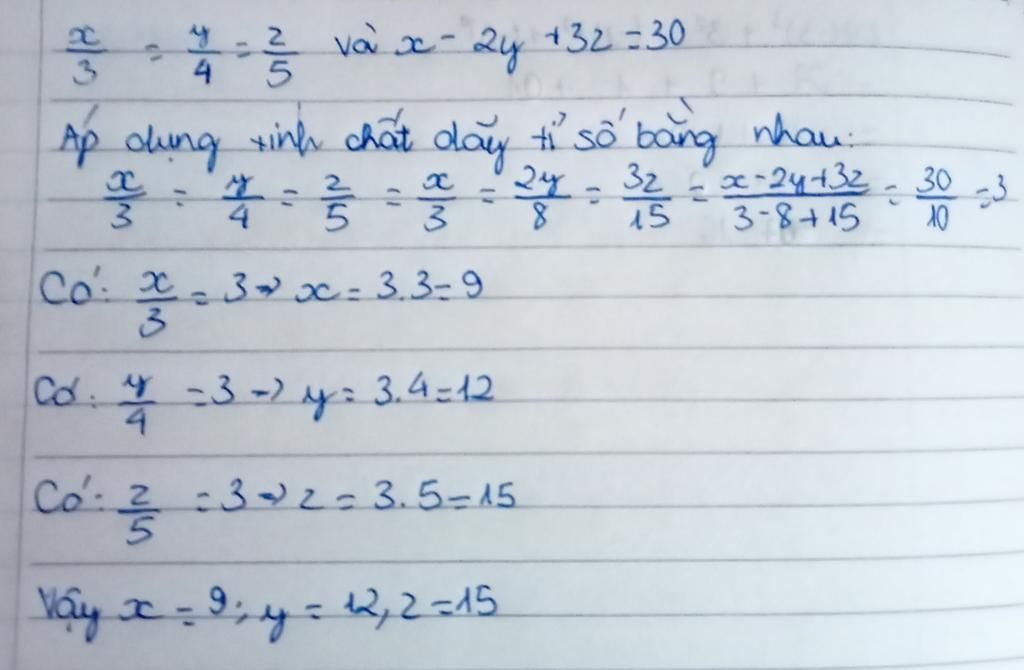 x/3 = y/4 = z/5 và x - 2y + 3z = 30
Áp dụng tính chất dãy tỉ số bằng nhau:
x/3 = y/4 = z/5 = x/3 = 2y/8 = 3z/15 = x-2y+3z/3-8+15 = 30/10 = 3
Có: x/3 = 3 => x = 3.3 = 9
Có: y/4 = 3 -> y = 3.4 = 12
Có: z/5 = 3 => z = 3.5 = 15
Vậy x = 9; y = 12, z = 15